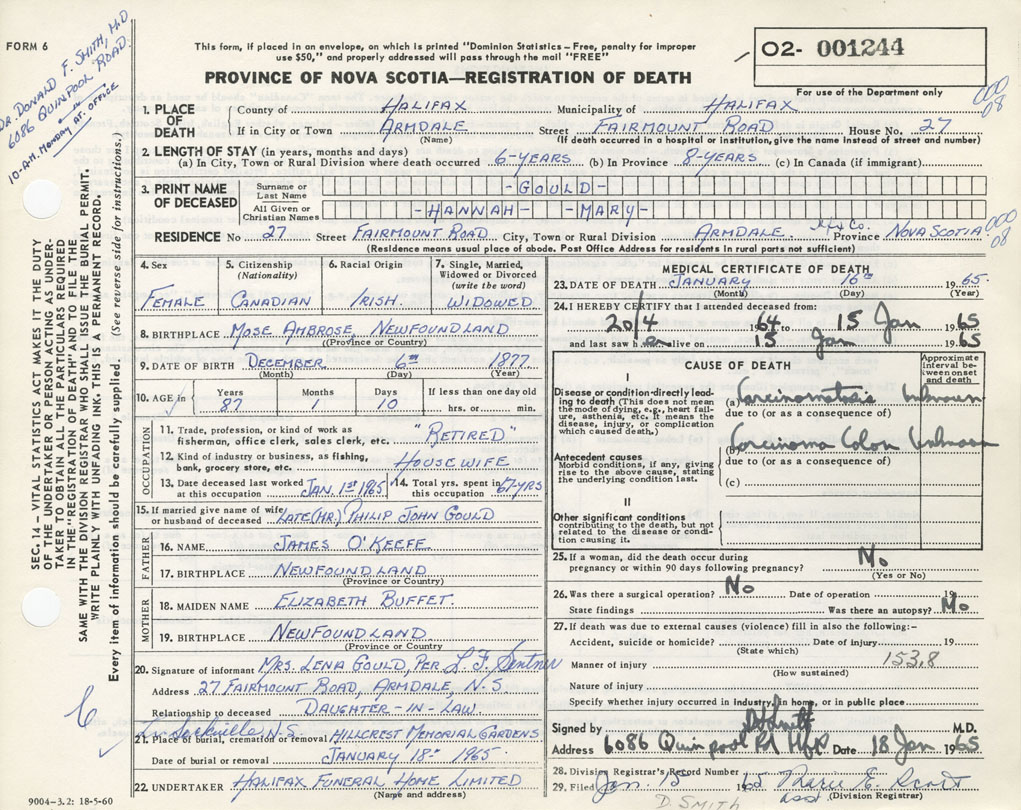 FORM 6
DR. DONALD F. SMITH, M.D
6086 QUINPOOL ROAD.
10-A.M. MONDAY AT. OFFICE
This form, if placed in an envelope, on which is printed "Dominion Statistics—Free, penalty for improper
use $50," and properly addressed will pass through the mail "FREE"
PROVINCE OF NOVA SCOTIA—REGISTRATION OF DEATH
02- 001244
For use of the Department only
000
08
1. PLACE OF DEATH { County of HALIFAX Municipality of HALIFAX
If in City or Town ARMDALE (Name) Street FAIRMOUNT ROAD House No. 27
(If death occurred in a hospital or institution, give name instead of street and number)
2. LENGTH OF STAY (in years, months and days)
(a) In City, Town or Rural Division where death occurred 6-YEARS (b) In Province 8-YEARS (c) In Canada (if immigrant)
3. PRINT NAME OF DECEASED { Surname or Last Name -GOULD-
All Given or Christian Names -HANNAH- -MARY-
RESIDENCE No 27 Street FAIRMOUNT ROAD City, Town or Rural Division ARMDALE Hfx Co. Province NOVA SCOTIA
000
08
(Residence means usual place of abode. Post Office Address for residents in rural parts not sufficient)
SEC. 14 – VITAL STATISTICS ACT MAKES IT THE DUTY
OF THE UNDERTAKER OR PERSON ACTING AS UNDER-
TAKER TO OBTAIN ALL THE PARTICULARS REQUIRED
IN THE "REGISTRATION OF DEATH" AND TO FILE THE
SAME WITH THE DIVISION REGISTRAR WHO SHALL ISSUE THE BURIAL PERMIT.
WRITE PLAINLY WITH UNFADING INK. THIS IS A PERMANENT RECORD.
Every item of information should be carefully supplied. (See reverse side for instructions.)
4. Sex
FEMALE
5. Citizenship
(Nationality)
CANADIAN
6. Racial Origin
IRISH.
7. Single, Married,
Widowed or Divorced
(write the word)
WIDOWED
8. BIRTHPLACE MOSE AMBROSE, NEWFOUNDLAND
(Province or Country)
9. DATE OF BIRTH DECEMBER 6TH 1877.
(Month) (Day) (Year)
10. AGE in Years 87 Months 1 Days 10 If less than one day old
hrs. or min.
OCCUPATION
11. Trade, profession, or kind of work as
fisherman, office clerk, sales clerk, etc. "RETIRED"
12. Kind of industry or business, as fishing,
bank, grocery store, etc. HOUSEWIFE
13. Date deceased last worked
at this occupation JAN. 1ST 1965
14. Total yrs. spent in
this occupation 67-YRS
15. If married give name of wife
or husband of deceased LATE (MR) PHILIP JOHN GOULD
FATHER
16. NAME JAMES O'KEEFE.
17. BIRTHPLACE NEWFOUNDLAND
(Province or Country)
MOTHER
18. MAIDEN NAME ELIZABETH BUFFET.
19. BIRTHPLACE NEWFOUNDLAND
(Province or Country)
20. Signature of informant MRS. LENA GOULD, PER L F Sentner
Address 27 FAIRMOUNT ROAD, ARMDALE, N.S.
Relationship to deceased DAUGHTER-IN-LAW.
Lr. Sackville, N.S.
21. Place of burial, cremation or removal HILLCREST MEMORIAL GARDENS
Date of burial or removal JANUARY 18TH 1965
22. UNDERTAKER HALIFAX FUNERAL HOME LIMITED
(Name and address)
9004-3.2: 18-5-60
MEDICAL CERTIFICATE OF DEATH
23. DATE OF DEATH JANUARY 16TH 1965.
(Month) (Day) (Year)
24. I HEREBY CERTIFY that I attended deceased from:
20/4 1964 to 15 Jan 1965
and last saw her alive on 15 Jan 1965
CAUSE OF DEATH
Approximate
interval be-
tween onset
and death
I
Disease or condition directly lead-
ing to death (This does not mean
the mode of dying, e.g., heart fail-
ure, asthenia, etc. It means the
disease, injury, or complication
which caused death.)
(a) Carcinomatosis Unknown
due to (or as a consequence of)
Antecedent causes
Morbid conditions, if any, giving
rise to the above cause, stating
the underlying condition last.
(b) Carcinoma Colon Unknown
due to (or as a consequence of)
(c)
II
Other significant conditions
contributing to the death, but not
related to the disease or condi-
tion causing it.
25. If a woman, did the death occur during
pregnancy or within 90 days following pregnancy? No
(Yes or No)
26. Was there a surgical operation? No Date of operation 19
State findings Was there an autopsy? No
27. If death was due to external causes (violence) fill in also the following:-
Accident, suicide or homicide? Date of injury 19
(State which)
Manner of injury 153.8
(How sustained)
Nature of injury
Specify whether injury occurred in industry, in home, or in public place
Signed by D F Smith M.D.
Address 6086 Quinpool Rd Hfx Date 18 Jan 1965
28. Division Registrar's Record Number
29. Filed Jan. 1965 Marie E. Scott
asst (Division Registrar)
D. SMITH